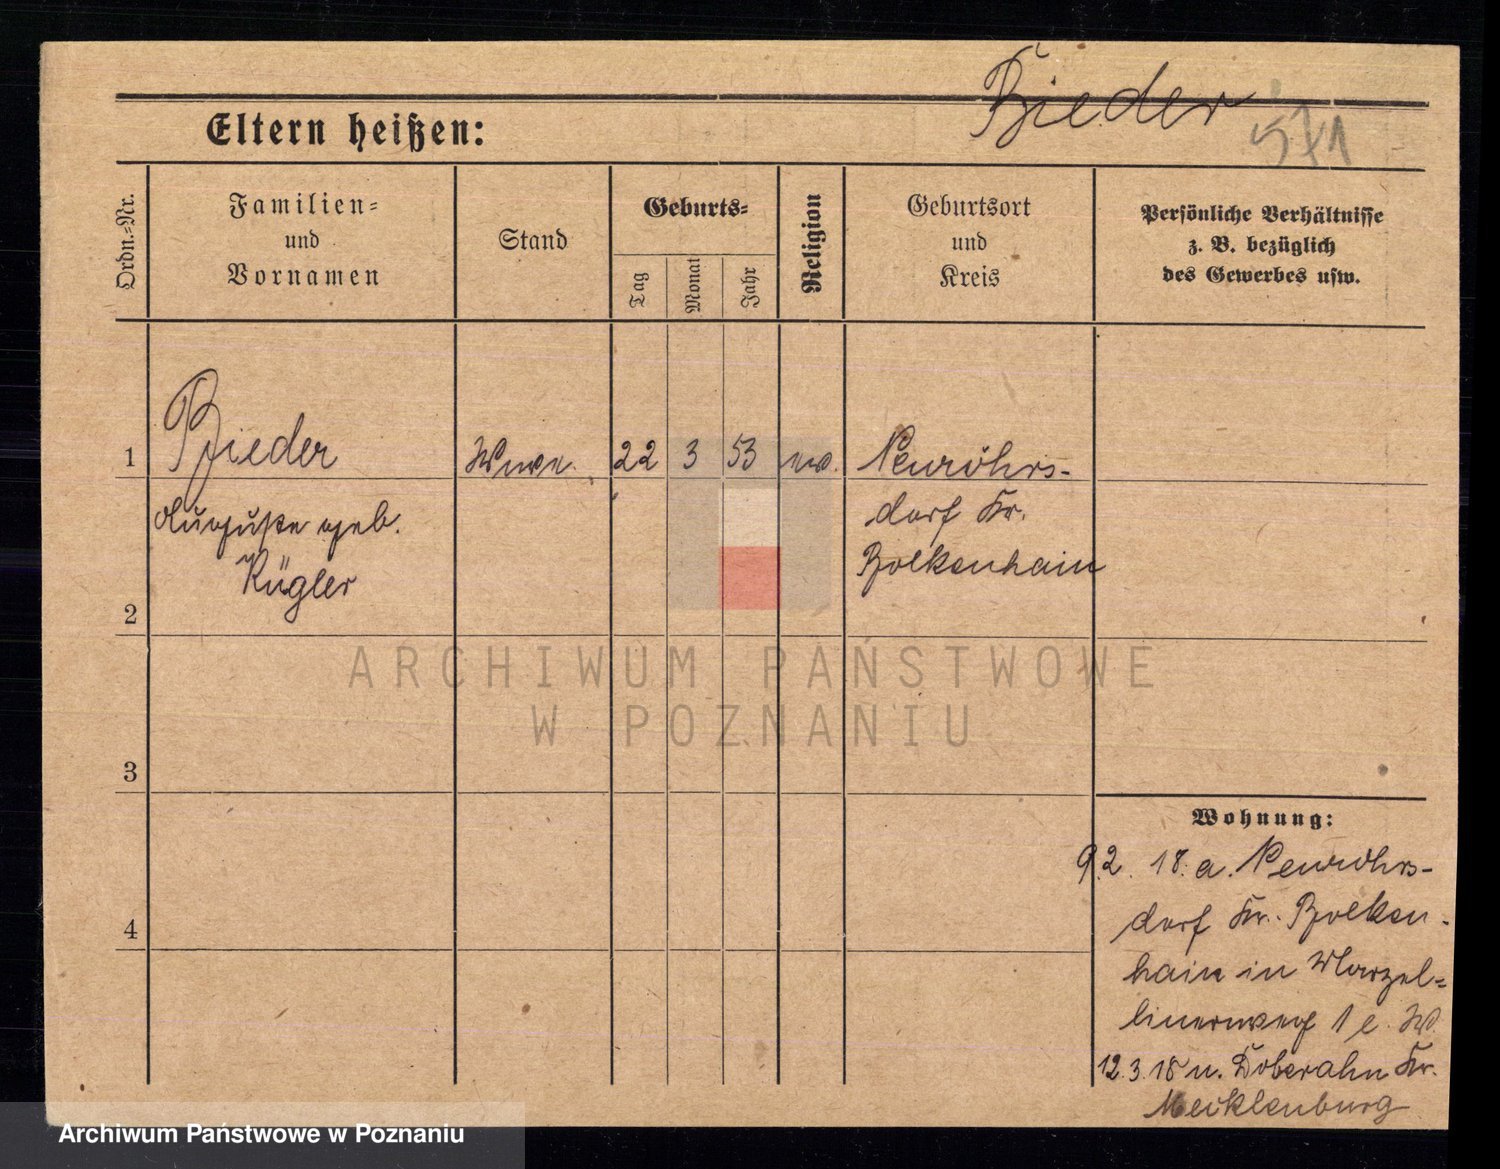 Bieder
571
Eltern heißen:
Ordn.=Nr.
Familien=
und
Vornamen
Stand
Geburts=
Tag
Monat
Jahr
Religion
Geburtsort
und
Kreis
Persönliche Verhältnisse
z. B. bezüglich
des Gewerbes usw.
1
Bieder
Wwe.
22
3
53
ev.
Neuröhrs-
dorf Kr.
Bolkenhain
Auguste geb.
Kügler
2
3
4
Wohnung:
9.2. 18. a. Neuröhrs-
dorf Kr. Bolken-
hain in
1 e. W.
12.3.18 n. Doberahn Kr.
Mecklenburg
ARCHIWUM PAŃSTWOWE
W POZNANIU
Archiwum Państwowe w Poznaniu